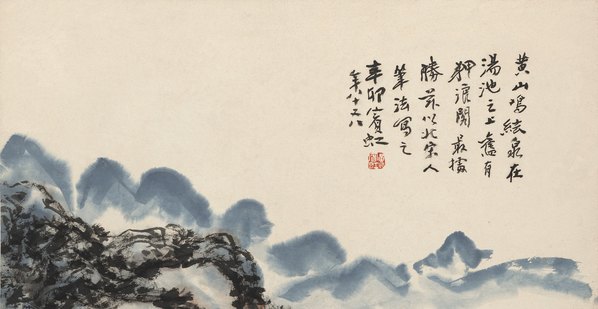 黄山鳴絃泉在
湯池之上舊有
狎浪閣最擅
勝茲以北宋人
筆法寫之
辛卯賓虹
年八十八